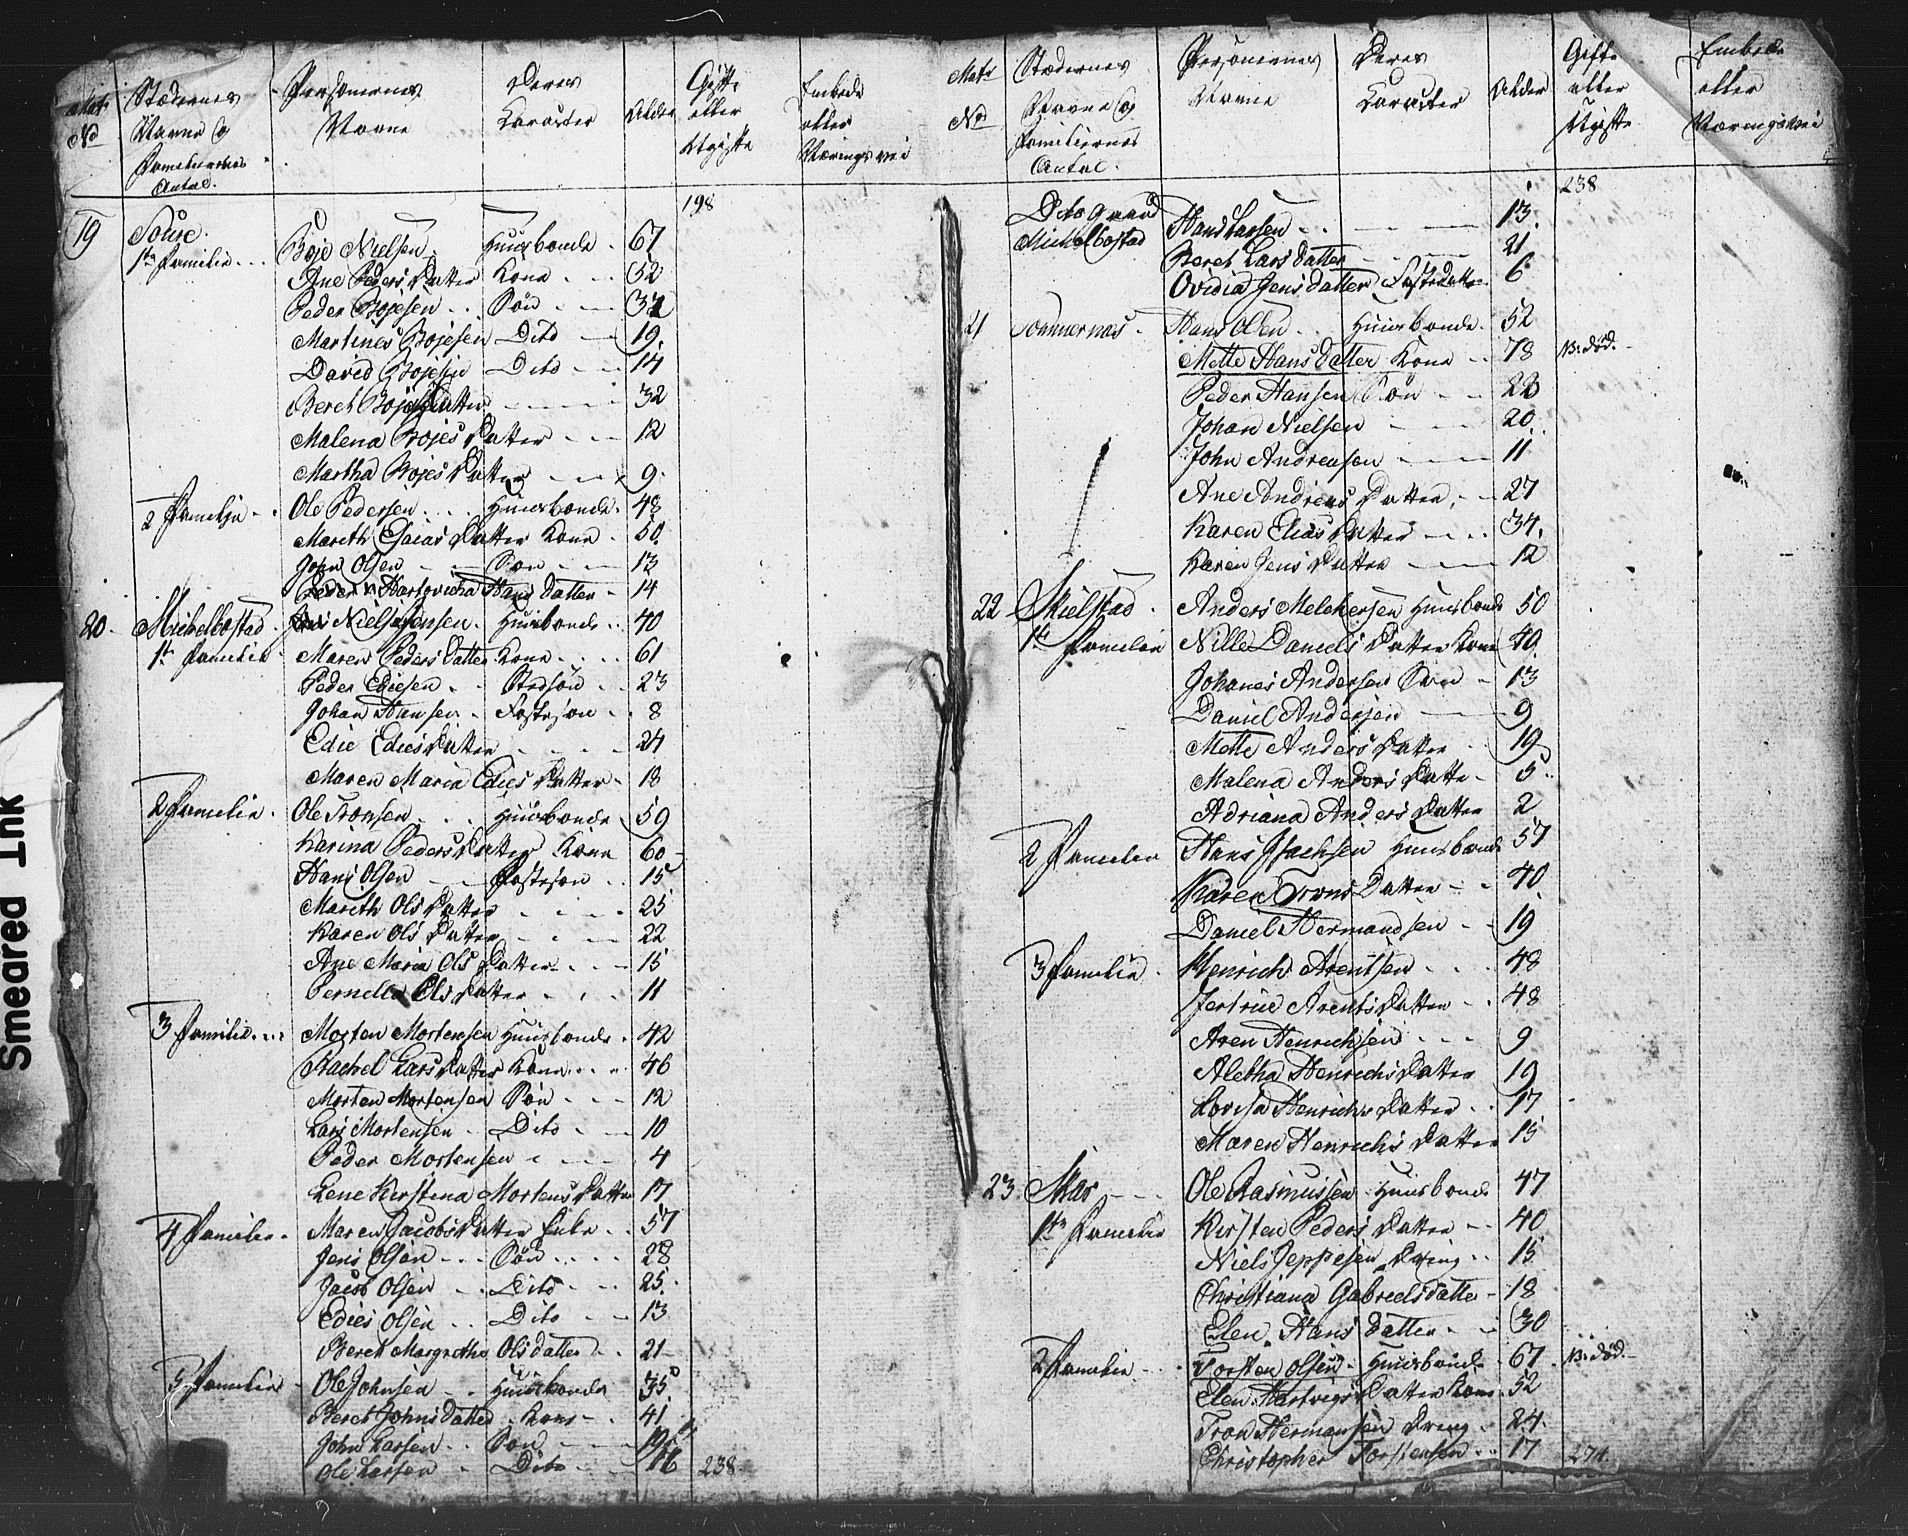 Matr No
Stædernes Navne og Familiernes Antal.
Personernes Navne
Deres Karacter
Alder
Gifte eller Ugifte
Embede eller Næringsvei
198
19 Sous
1te Familie Boje Nielsen Huusbonde 67
Ane Peders Datter Kone 52
Peder Bojesen Søn 32
Martines Bojesen Dito 19
David Bojesen Dito 14
Beret Bojes Datter 32
Malena Bojes Datter 12
Martha Bojes Datter 9
2 Familie Ole Pedersen Huusbonde 48
Mareth Esaias Datter Kone 50
John Olsen Søn 13
Hartovicha Hans Datter 14
20 Michelbostad Niels Jensen Huusbonde 40
1te Familie Maren Peders Datter Kone 61
Peder Ediesen Stedsøn 23
Johan Hansen Fostesøn 8
Edie Edies Datter 24
Maren Maria Edies Datter 18
2 Familie Ole Tronsen Huusbonde 59
Karina Peders Datter Kone 60
Hans Olsen Fostesøn 15
Mareth Ols Datter 25
Karen Ols Datter 22
Ane Maria Ols Datter 15
Pernella Ols Datter 11
3 Familie Morten Mortensen Huusbonde 42
Rachel Lars Datter Kone 46
Morten Mortensen Søn 12
Lars Mortensen Dito 10
Peder Mortensen 4
Lene Kirstina Mortens Datter 17
4 Familie Maren Jacobs Datter Enke 57
Jens Olsen Søn 28
Jacob Olsen Dito 25
Edies Olsen Dito 13
Beret Margrethe Olsdatter 21
5 Familie Ole Johnsen Huusbonde 35
Beret Johns Datter Kone 41
John Larsen Søn 19
Ole Larsen Dito 16 238
Matr No
Stædernes Navne og Familiernes Antal.
Personernes Navne
Deres Karacter
Alder
Gifte eller Ugifte
Embede eller Næringsvei
238
Dito gaard Hans Larsen 13
Michelbostad Beret Lars Datter 21
Ovidia Jens Datter Fosterdatter 6
21 Sommernas Hans Olsen Huusbonde 52
Mette Hans Datter Kone 78 N: død.
Peder Hansen Søn 22
Johan Nielsen 20
John Andreasen 11
Ane Andreas Datter 27
Karen Elias Datter 34
Karen Jens Datter 12
22 Skielstad Anders Melchersen Huusbonde 50
1te Familie Nille Daniels Datter Kone 40
Johanes Andersen Søn 13
Daniel Andersen 9
Mette Anders Datter 19
Malena Anders Datter 5
Adriana Anders Datter 2
2 Familie Hans Isachsen Huusbonde 57
Karen Trons Datter 40
Daniel Hermandsen 19
3 Familie Henrich Arentsen 48
Jertrue Arents Datter 48
Aren Henrichsen 9
Aletha Henrichs Datter 19
Lovisa Henrichs Datter 17
Maren Henrichs Datter 15
23 Skar Ole Rasmussen Huusbonde 47
1te Familie Kirsten Peders Datter 40
Niels Jeppesen Dreng 15
Christiana Gabrielsdatter 18
Elen Hans Datter 30
2 Familie Torsten Olsen Huusbonde 67 N: død.
Elen Hartvigs Datter Kone 52
Tron Hermansen Dreng 24
Christopher Torstensen 17 274
Smeared Ink